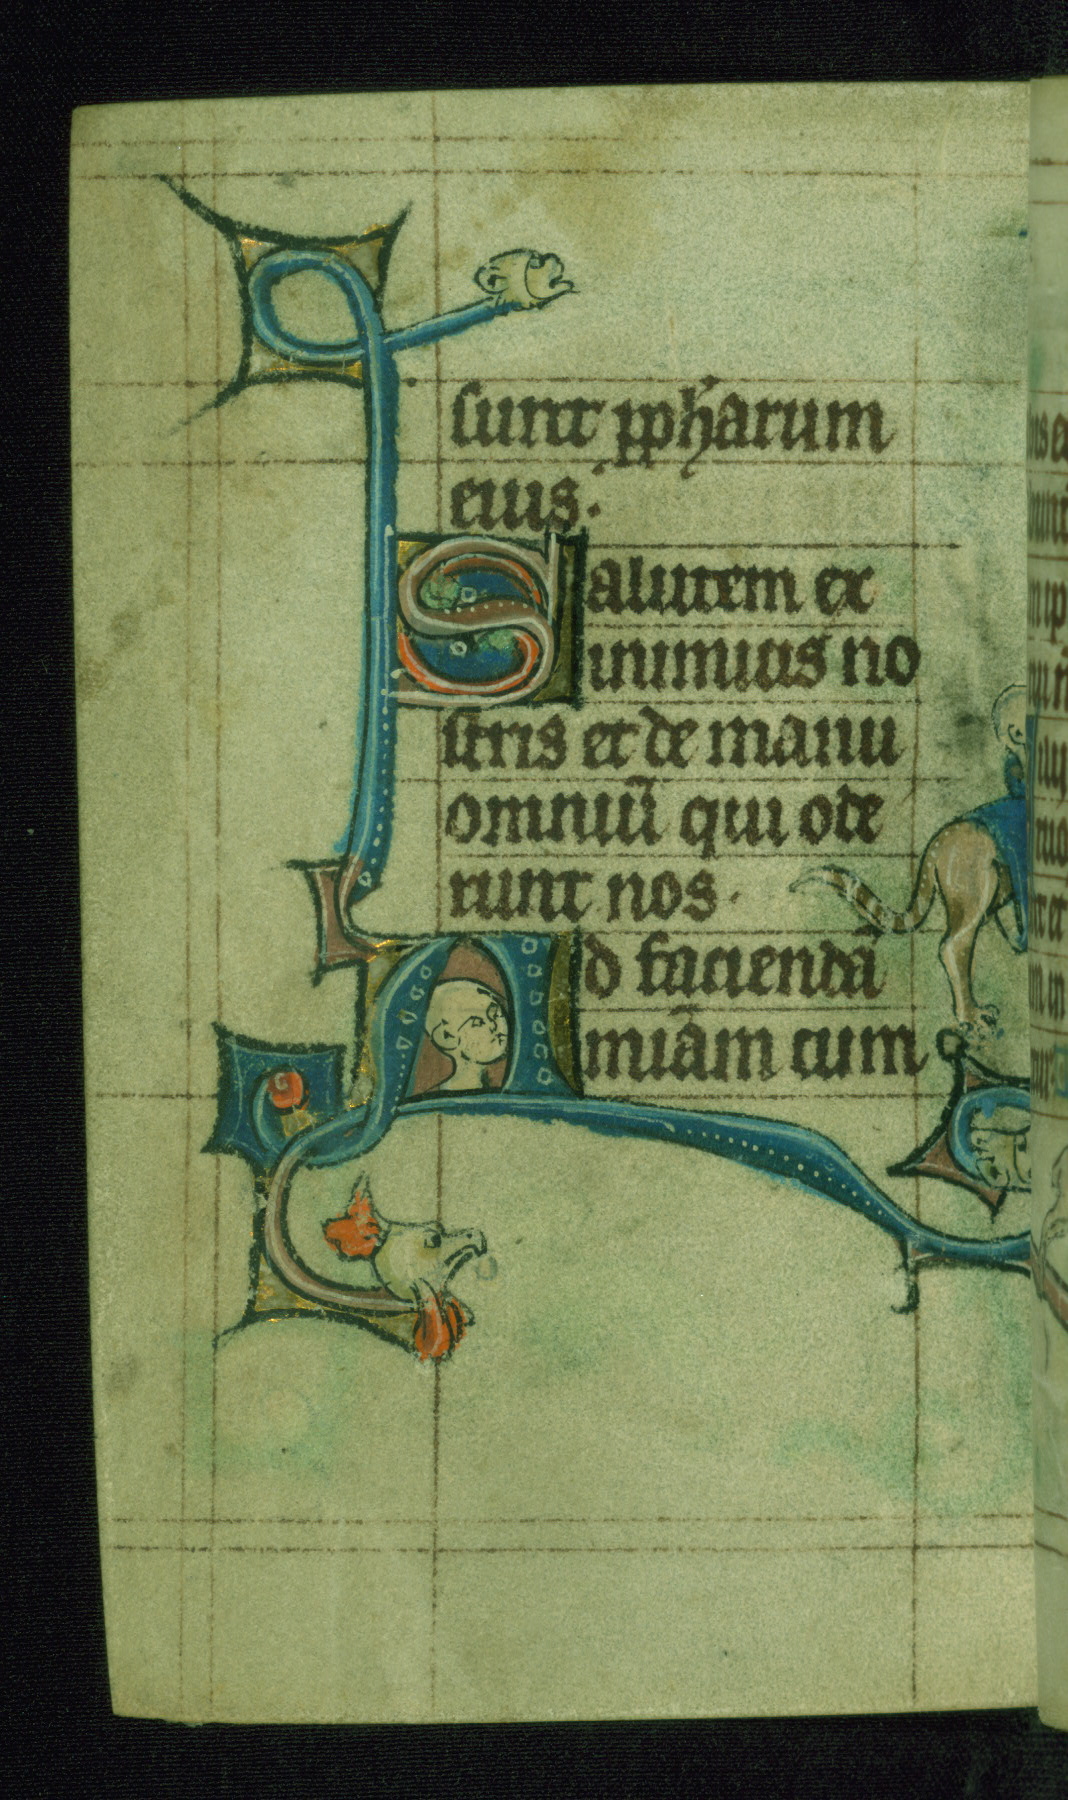 sunt ꝓpħarum
eius.
Salutem ex
inimicis no
stris et de manu
omniū qui ode
runt nos.
Ad faciendā
miām cum